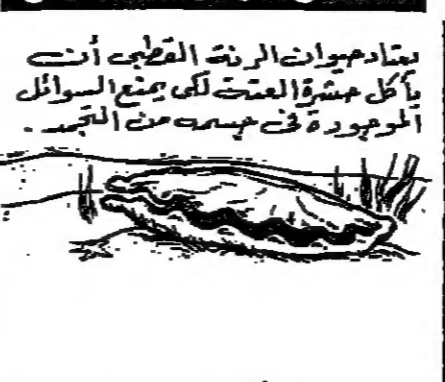 يعتاد حيوان الرنة القطبي أن
يأكل حشرة العتة لكي يمنع السوائل
الموجودة في جسمه من التجمد .